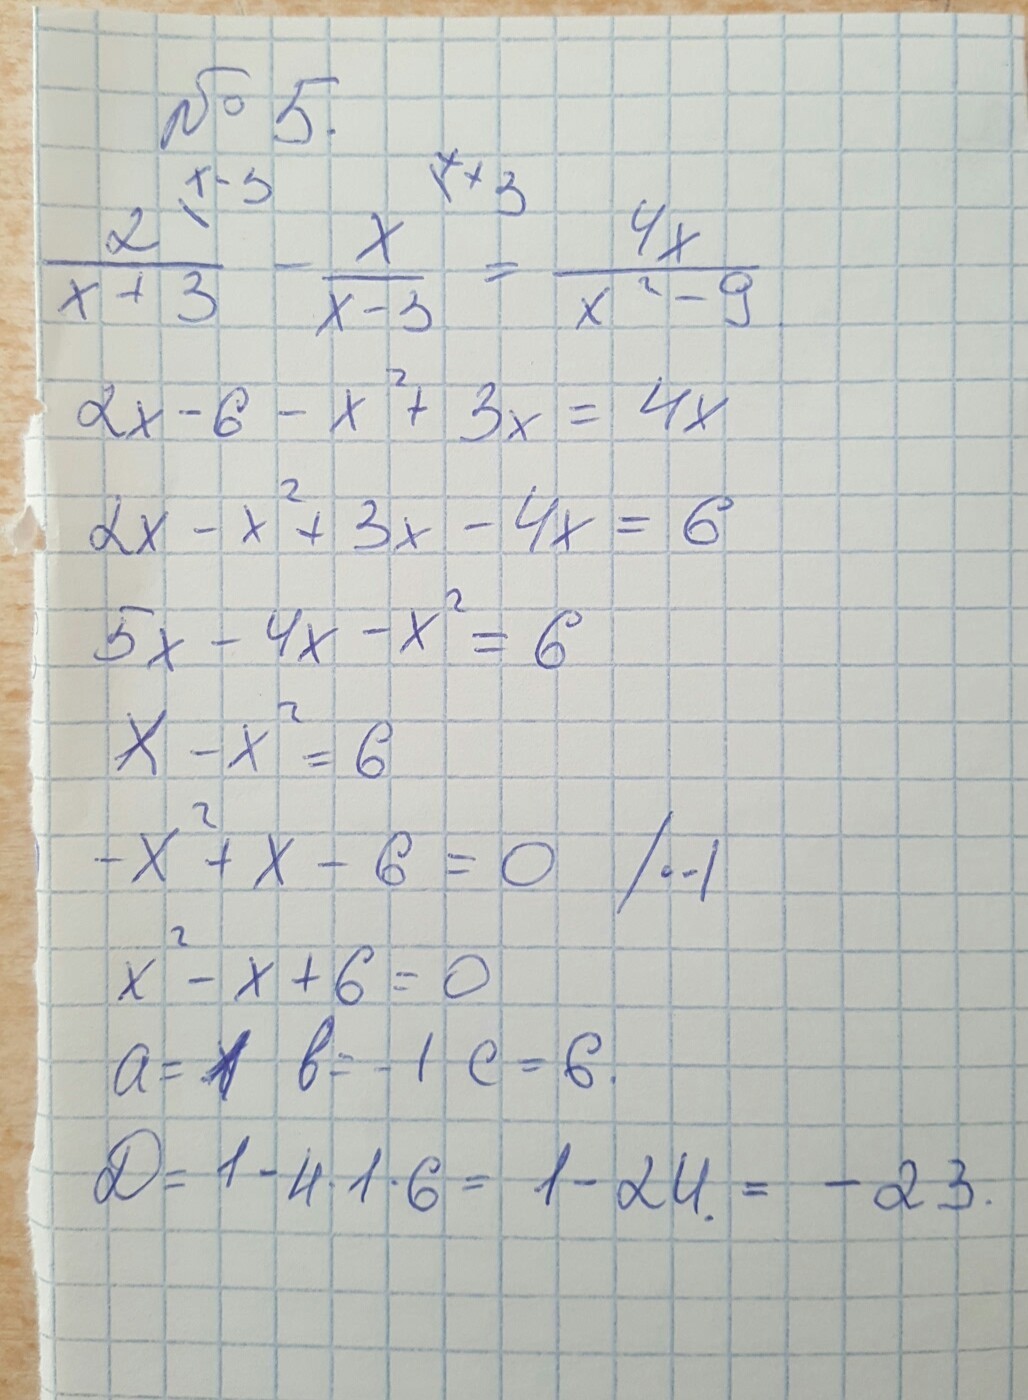 № 5.
x-3 x+3
2/(x+3) - x/(x-3) = 4x/(x²-9)
2x-6-x²+3x=4x
2x-x²+3x-4x=6
5x-4x-x²=6
x-x²=6
-x²+x-6=0 /·-1
x²-x+6=0
a=1 b=-1 c=6.
D=1-4·1·6=1-24.=-23.